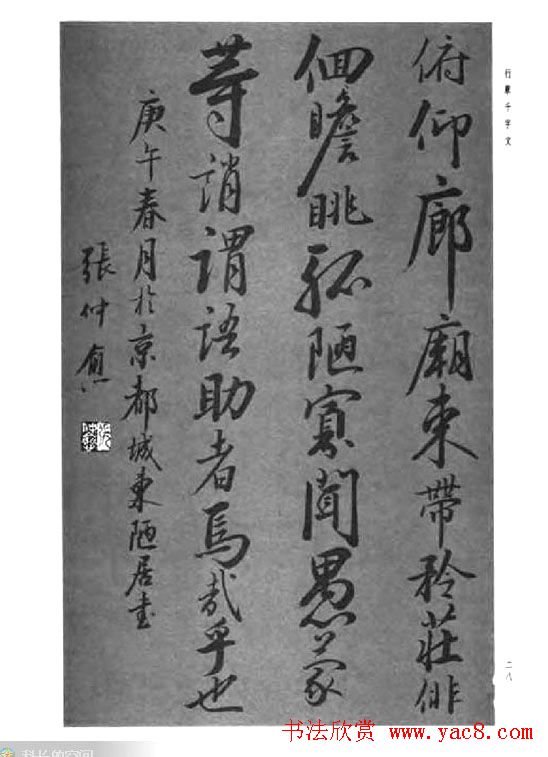 俯仰廊廟束帶矜莊俳
徊瞻眺孤陋寡聞愚蒙
等誚謂語助者焉哉乎也
庚午春月於京都城東陋居書
張仲愈
行草千字文
二八
书法欣赏
www.yac8.com
科长的空间